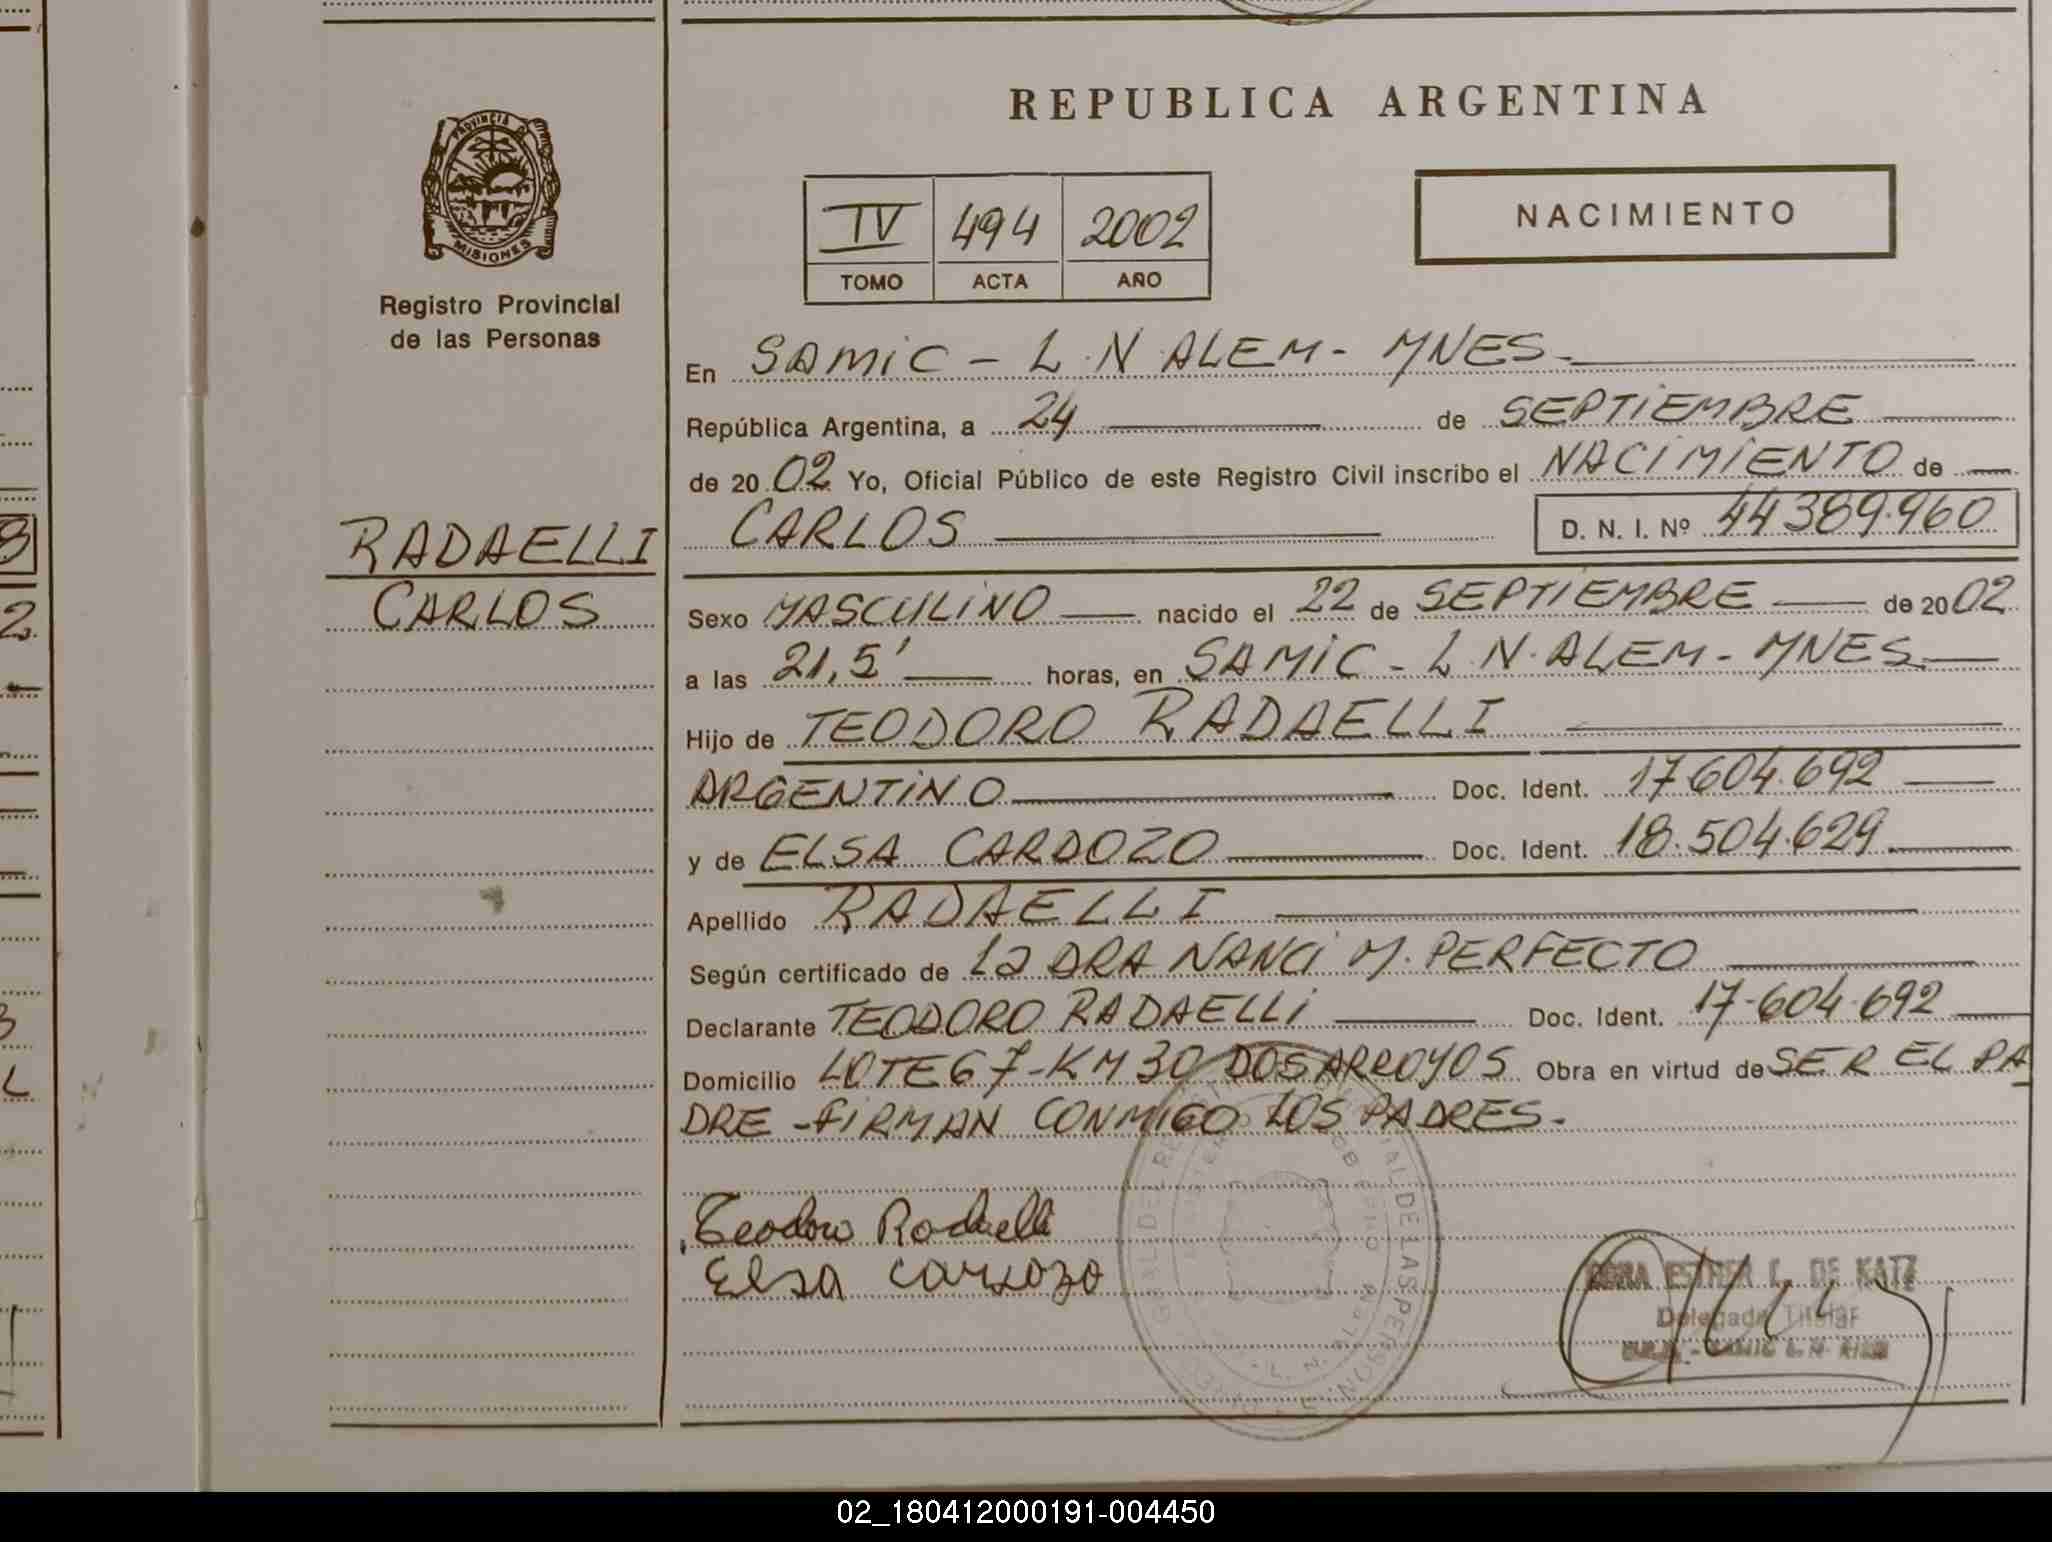 REPUBLICA ARGENTINA
PROVINCIA DE
MISIONES
Registro Provincial
de las Personas
IV 494 2002
TOMO ACTA AÑO
NACIMIENTO
En SAMIC - L.N.ALEM - MNES.
República Argentina, a 24 de SEPTIEMBRE
de 2002 Yo, Oficial Público de este Registro Civil inscribo el NACIMIENTO de
RADAELLI
CARLOS
CARLOS D. N. I. Nº 44389.960
Sexo MASCULINO nacido el 22 de SEPTIEMBRE de 2002
a las 21,5' horas, en SAMIC - L.N.ALEM - MNES
Hijo de TEODORO RADAELLI
ARGENTINO Doc. Ident. 17.604.692
y de ELSA CARDOZO Doc. Ident. 18.504.629
Apellido RADAELLI
Según certificado de La DRA NANCI M. PERFECTO
Declarante TEODORO RADAELLI Doc. Ident. 17.604.692
Domicilio LOTE 67 - KM 30 DOS ARROYOS Obra en virtud de SER EL PA
DRE - FIRMAN CONMIGO LOS PADRES.
Teodoro Radaelli
Elsa Cardozo
ESTHER DE KATZ
Delegada Titular
02_180412000191-004450